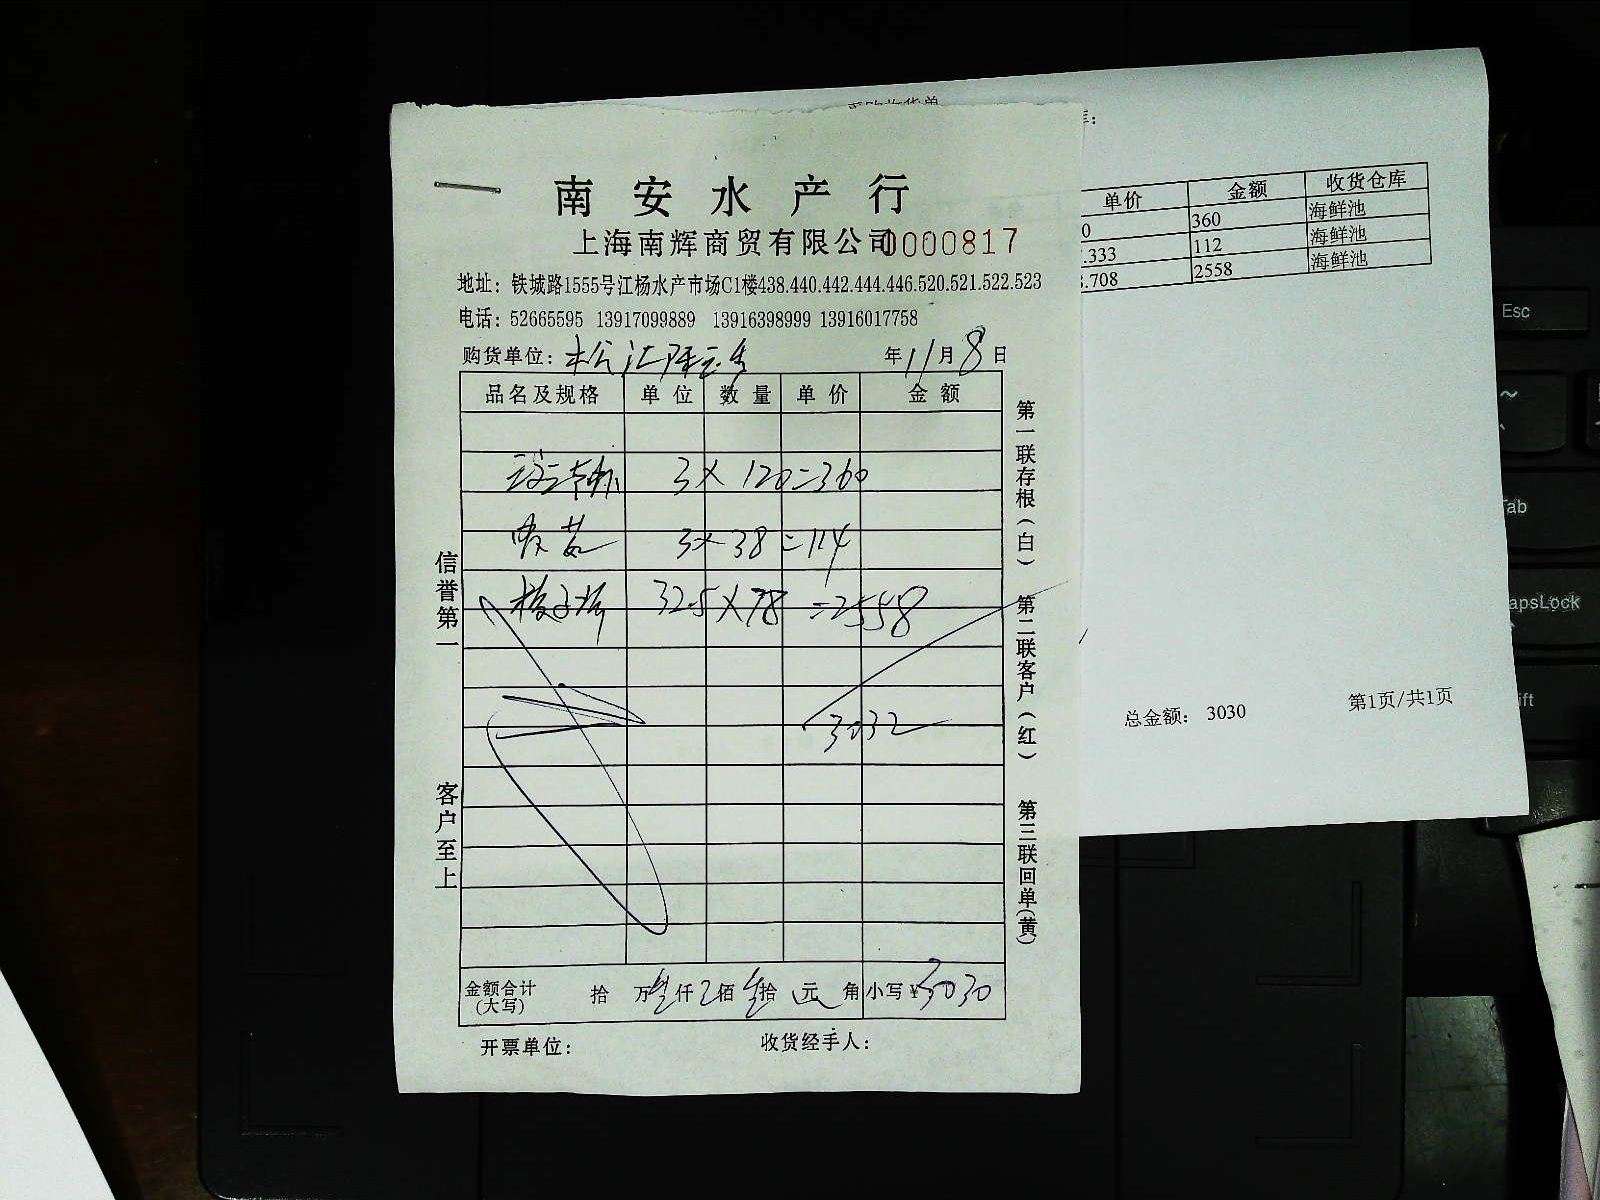 南安水产行
上海南辉商贸有限公司 0000817
地址：铁城路1555号江杨水产市场C1楼438.440.442.444.446.520.521.522.523
电话：52665595 13917099889 13916398999 13916017758
购货单位：松江 年11月8日
品名及规格 单位 数量 单价 金额
3×120=360
3×38=114
32.5×78=2558
3032
金额合计(大写) 拾 万叁仟 佰叁拾 元 角 小写¥3030
开票单位： 收货经手人：
信誉第一 客户至上
第一联存根(白) 第二联客户(红) 第三联回单(黄)
采购收货单
单价 金额 收货仓库
0 360 海鲜池
.333 112 海鲜池
.708 2558 海鲜池
总金额： 3030 第1页/共1页
Esc
~
Tab
CapsLock